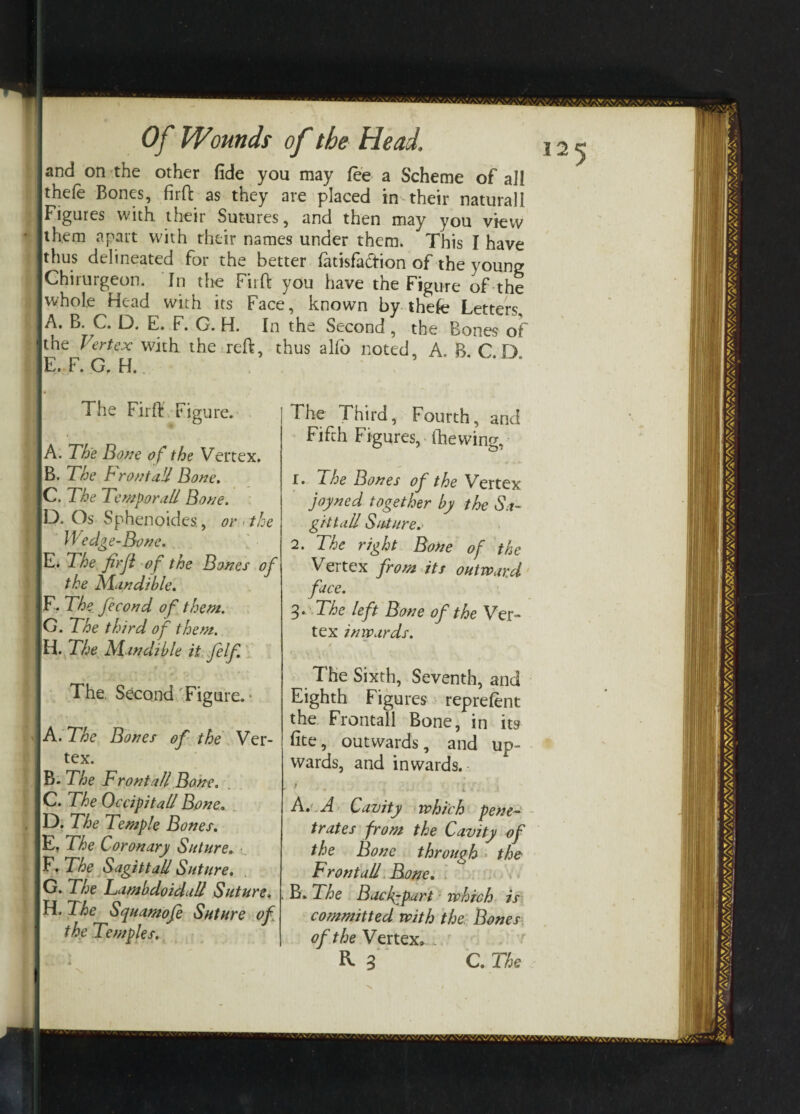 Of Wounds of the Head.
125
and on the other ſide you may ſee a Scheme of all
theſe Bones, firſt as they are placed in their naturall
Figures with their Sutures, and then may you view
them apart with their names under them. This I have
thus delineated for the better ſatisfaction of the young
Chirurgeon. In the Firſt you have the Figure of the
whole Head with its Face, known by theſe Letters,
A. B. C. D. E. F. G. H. In the Second, the Bones of
the Vertex with the reſt, thus alſo noted, A. B. C. D.
E. F. G. H.
The Firſt Figure.
A. The Bone of the Vertex.
B. The Frontall Bone.
C. The Temporall Bone.
D. Os Sphenoides, or the
Wedge-Bone.
E. The firſt of the Bones of
the Mandible.
F. The ſecond of them.
G. The third of them.
H. The Mandible it ſelf.
The Second Figure.
A. The Bones of the Ver-
tex.
B. The Frontall Bone.
C. The Occipitall Bone.
D. The Temple Bones.
E. The Coronary Suture.
F. The Sagittall Suture.
G. The Lambdoidall Suture.
H. The Squamoſe Suture of
the Temples.
The Third, Fourth, and
Fifth Figures, ſhewing,
1. The Bones of the Vertex
joyned together by the Sa-
gittall Suture.
2. The right Bone of the
Vertex from its outward
face.
3. The left Bone of the Ver-
tex inwards.
The Sixth, Seventh, and
Eighth Figures repreſent
the Frontall Bone, in its
ſite, outwards, and up-
wards, and inwards.
A. A Cavity which pene-
trates from the Cavity of
the Bone through the
Frontall Bone.
B. The Back-part which is
committed with the Bones
of the Vertex.
R 3
C. The